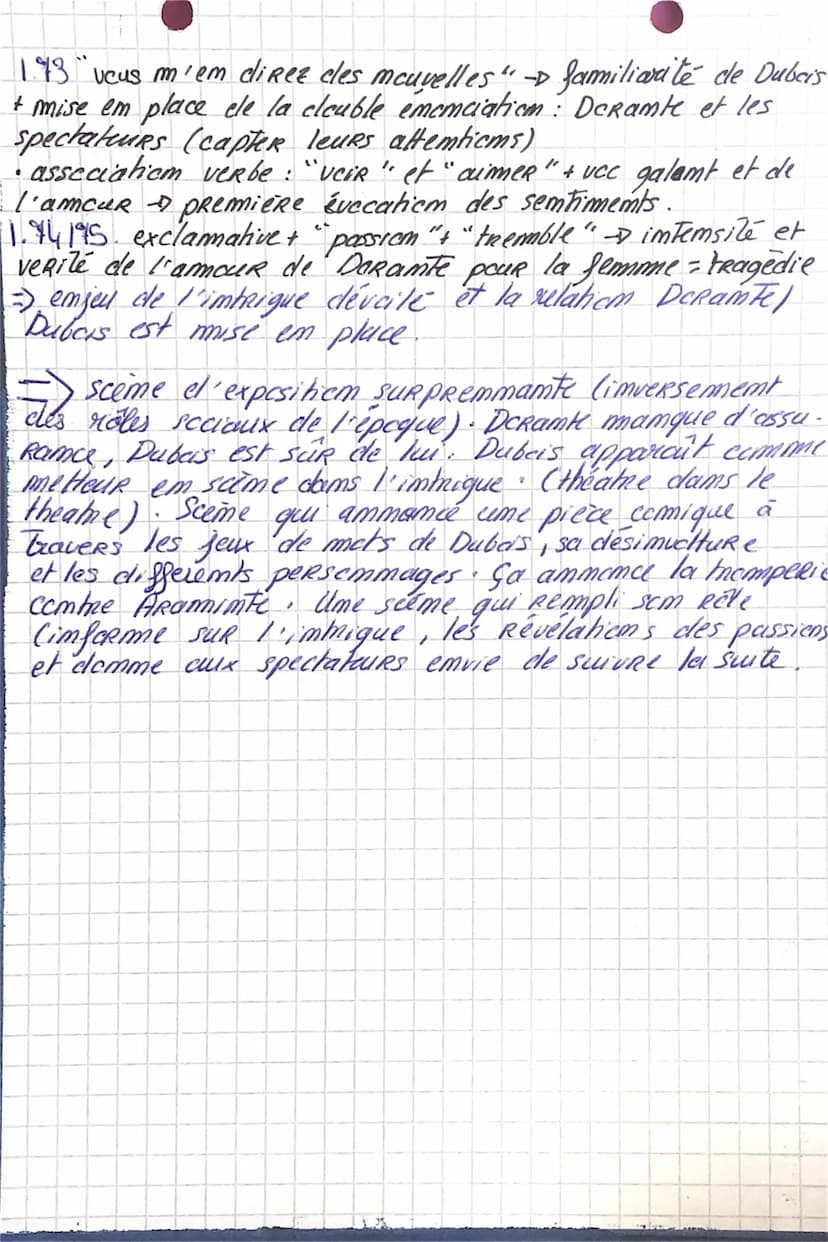 l.73 "vous m'en direz des nouvelles" → familiarité de Dubois
+ mise en place de la double enonciation : Dorante et les
spectateurs (capter leurs attentions)
• association verbe : "voir" et "aimer" + voc galant et de
l'amour → première évocation des sentiments.
l.74/75. exclamative + "passion" + "tremble" → intensité et
verité de l'amour de Dorante pour la femme = tragédie
=> enjeu de l'intrigue dévoilé et la relation Dorante/
Dubois est mise en place.
=> scène d'exposition surprennante (inversement
des rôles sociaux de l'époque). Dorante manque d'assu-
rance, Dubois est sûr de lui. Dubois apparaît comme
metteur en scène dans l'intrigue. (théatre dans le
theatre). Scène qui annonce une pièce comique à
travers les jeux de mots de Dubois, sa désinvolture
et les differents personnages. Ça annonce la tromperie
contre Araminte. Une scène qui rempli son rôle
(informe sur l'intrigue, les révélations des passions
et donne aux spectateurs envie de suivre la suite.